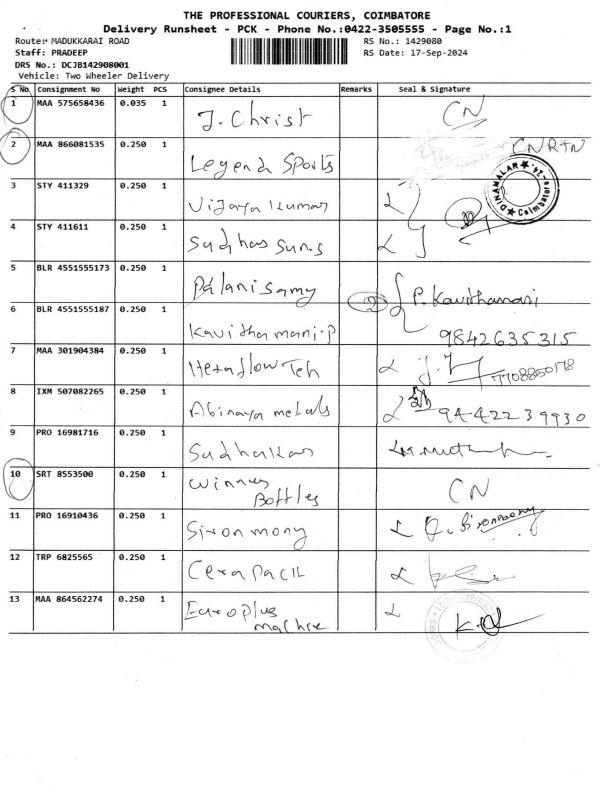 THE PROFESSIONAL COURIERS, COIMBATORE
Delivery Runsheet - PCK - Phone No.:0422-3505555 - Page No.:1
Route: MADUKKARAI ROAD RS No.: 1429080
Staff: PRADEEP RS Date: 17-Sep-2024
DRS No.: DCJB142908001
Vehicle: Two Wheeler Delivery
S No Consignment No Weight PCS Consignee Details Remarks Seal & Signature
1 MAA 575658436 0.035 1 J. Christ CN
2 MAA 866081535 0.250 1 Legend Sports CNRTN
3 STY 411329 0.250 1 Vijaya Kumar
DINAMALAR Coimbatore
4 STY 411611 0.250 1 Sudhas Suns
5 BLR 4551555173 0.250 1 Palanisamy 2 P. Kavithamani
6 BLR 4551555187 0.250 1 Kavithamani-P 9842635315
7 MAA 301904384 0.250 1 Hexaflow Teh 7708850178
8 IXM 507082265 0.250 1 Abinaya metals 9442239930
9 PRO 16981716 0.250 1 Sudhakar
10 SRT 8553500 0.250 1 Winnus
Bottles CN
11 PRO 16910436 0.250 1 Siron mony
12 TRP 6825565 0.250 1 Cera Pack
13 MAA 864562274 0.250 1 Europlus
Machine